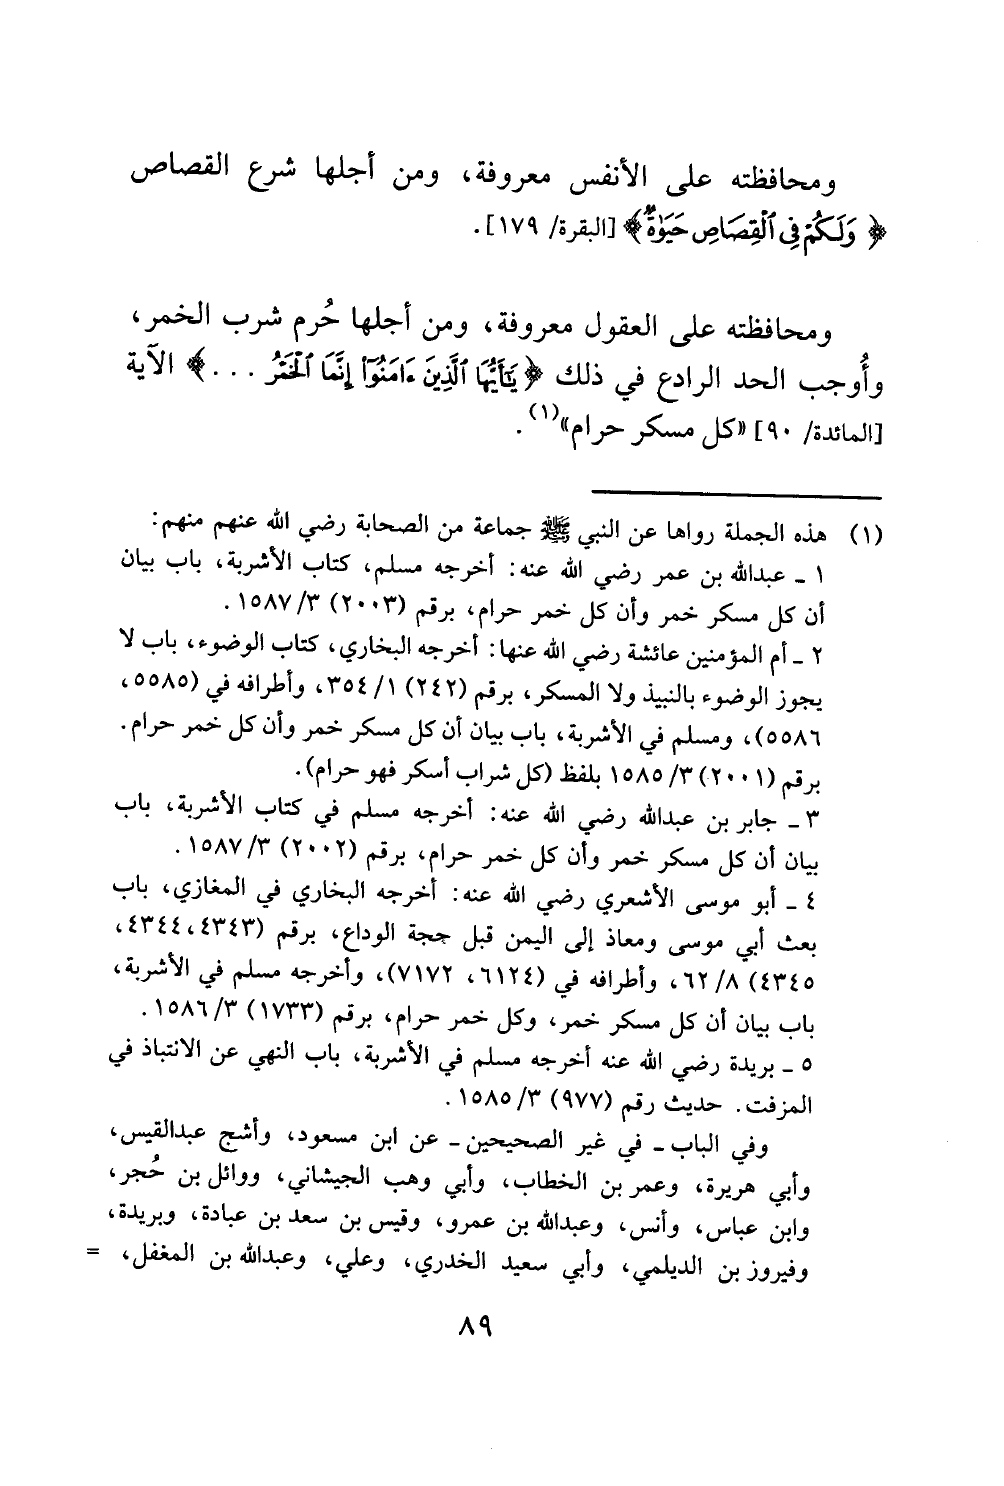 ومحافظته على الأنفس معروفة، ومن أجلها شرع القصاص
﴿ وَلَكُمْ فِي ٱلْقِصَاصِ حَيَوٰةٌ ﴾ [البقرة/ ١٧٩].
ومحافظته على العقول معروفة، ومن أجلها حُرم شرب الخمر،
وأُوجب الحد الرادع في ذلك ﴿ يَٰٓأَيُّهَا ٱلَّذِينَ ءَامَنُوٓا۟ إِنَّمَا ٱلْخَمْرُ ... ﴾ الآية
[المائدة/ ٩٠] «كل مسكر حرام»(١).
(١) هذه الجملة رواها عن النبي ﷺ جماعة من الصحابة رضي الله عنهم منهم:
١ ـ عبدالله بن عمر رضي الله عنه: أخرجه مسلم، كتاب الأشربة، باب بيان
أن كل مسكر خمر وأن كل خمر حرام، برقم (٢٠٠٣) ٣/ ١٥٨٧.
٢ ـ أم المؤمنين عائشة رضي الله عنها: أخرجه البخاري، كتاب الوضوء، باب لا
يجوز الوضوء بالنبيذ ولا المسكر، برقم (٢٤٢) ١/ ٣٥٤، وأطرافه في (٥٥٨٥،
٥٥٨٦)، ومسلم في الأشربة، باب بيان أن كل مسكر خمر وأن كل خمر حرام.
برقم (٢٠٠١) ٣/ ١٥٨٥ بلفظ (كل شراب أسكر فهو حرام).
٣ ـ جابر بن عبدالله رضي الله عنه: أخرجه مسلم في كتاب الأشربة، باب
بيان أن كل مسكر خمر وأن كل خمر حرام، برقم (٢٠٠٢) ٣/ ١٥٨٧.
٤ ـ أبو موسى الأشعري رضي الله عنه: أخرجه البخاري في المغازي، باب
بعث أبي موسى ومعاذ إلى اليمن قبل حجة الوداع، برقم (٤٣٤٣، ٤٣٤٤،
٤٣٤٥) ٨/ ٦٢، وأطرافه في (٦١٢٤، ٧١٧٢)، وأخرجه مسلم في الأشربة،
باب بيان أن كل مسكر خمر، وكل خمر حرام، برقم (١٧٣٣) ٣/ ١٥٨٦.
٥ ـ بريدة رضي الله عنه أخرجه مسلم في الأشربة، باب النهي عن الانتباذ في
المزفت. حديث رقم (٩٧٧) ٣/ ١٥٨٥.
وفي الباب ـ في غير الصحيحين ـ عن ابن مسعود، وأشج عبدالقيس،
وأبي هريرة، وعمر بن الخطاب، وأبي وهب الجيشاني، ووائل بن حُجر،
وابن عباس، وأنس، وعبدالله بن عمرو، وقيس بن سعد بن عبادة، وبريدة،
وفيروز بن الديلمي، وأبي سعيد الخدري، وعلي، وعبدالله بن المغفل، =
٨٩